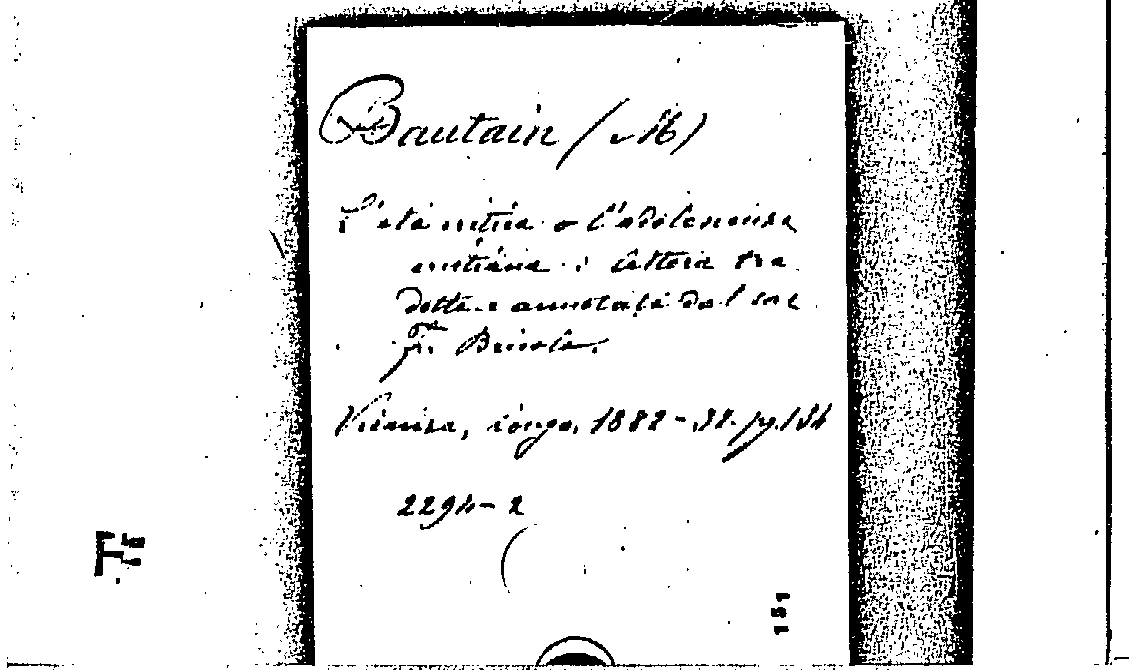 Bautain (M)
L'età critica o l'adolescenza
cristiana: lettera tra
dotta e annotata dal sac
Fr.
Vicenza, Longo, 1882 - 32. pg. 134
2294-2
151